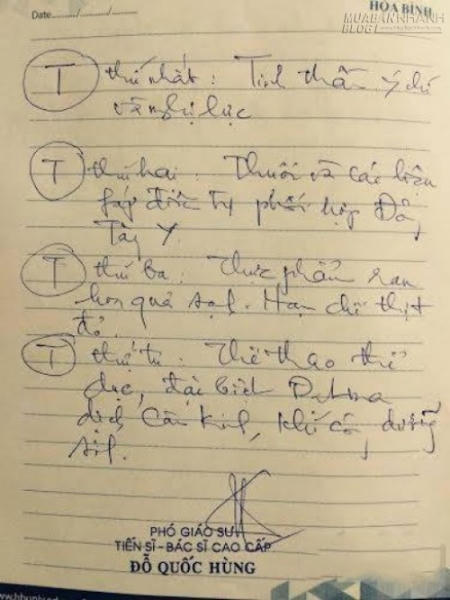 Date
HÒA BÌNH
MUABANNHANH
BLOG
T thứ nhất: Tinh thần ý chí
và nghị lực
T thứ hai: Thuốc và các biện
pháp điều trị phối hợp Đông
Tây Y
T thứ ba: Thực phẩm rau
hoa quả sạch. Hạn chế thịt
đỏ.
T thứ tư: Thể thao thể
dục, đặc biệt
dịch Cân Kinh, khí công dưỡng
sinh.
PHÓ GIÁO SƯ
TIẾN SĨ - BÁC SĨ CAO CẤP
ĐỖ QUỐC HÙNG